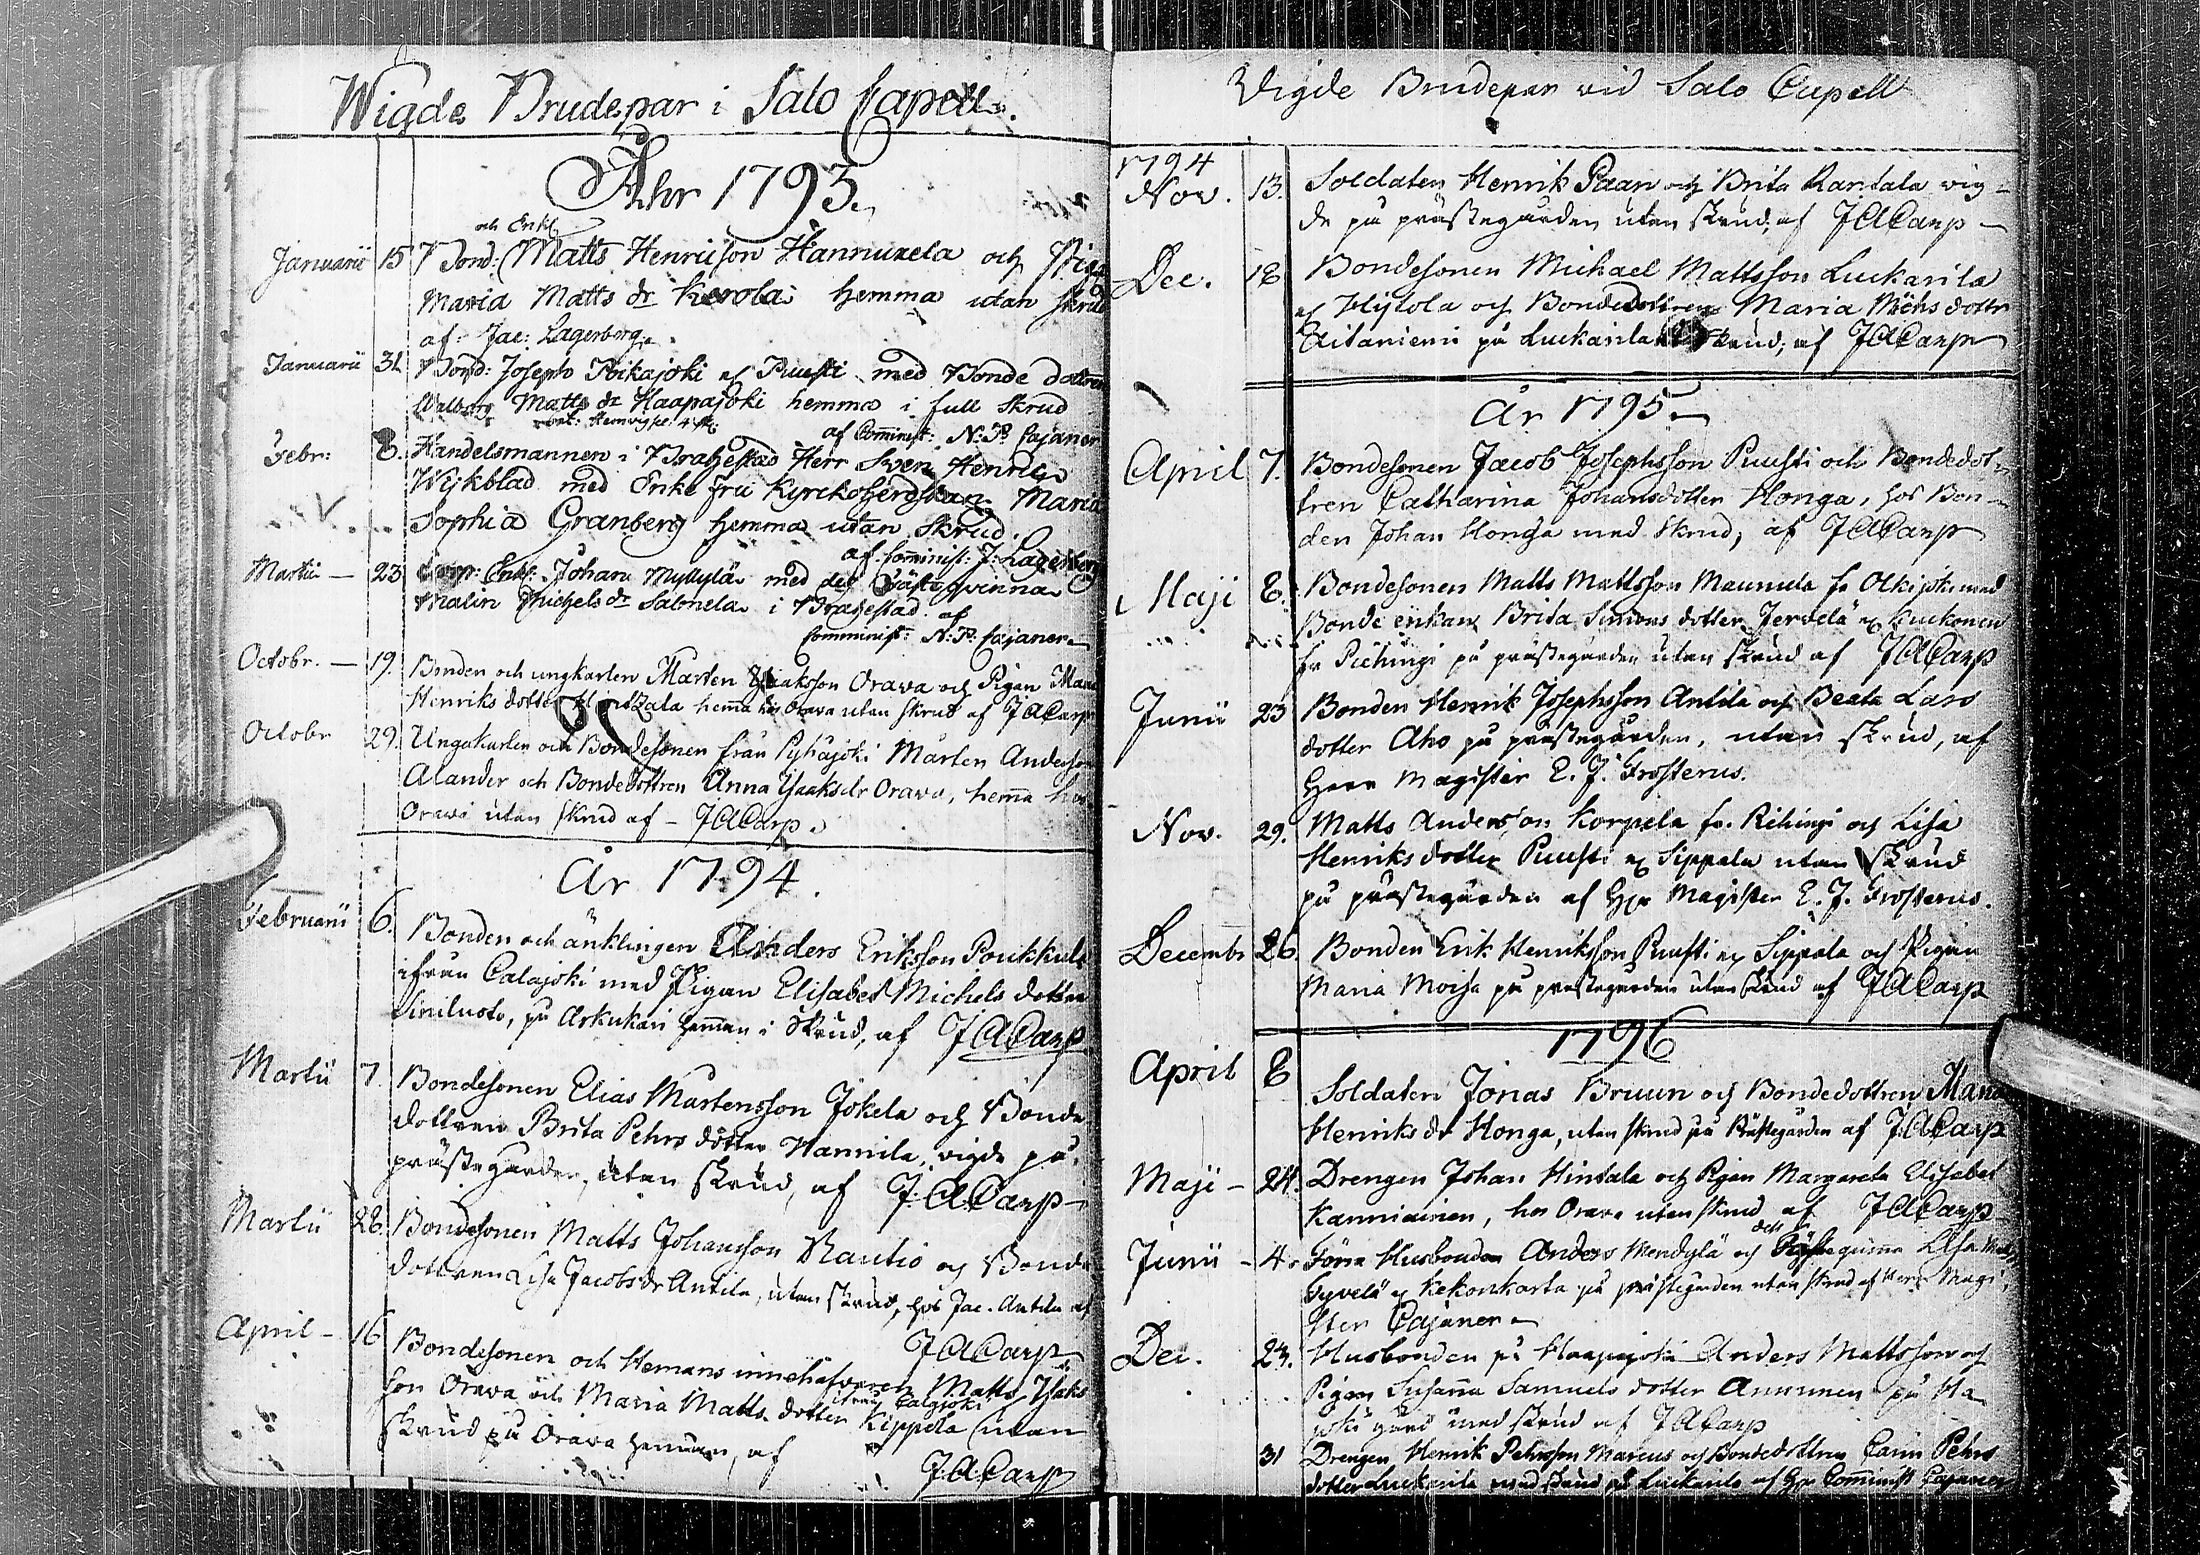 Wigde Brudepar i Salo Capell.
Åhr 1793.
och Enkl:
Januarii 15 Bond: Matts Henricsson Hannuxela och Pig:
Maria Matts dr Kerola hemma utan skrud
af: Jac: Lagerberg.
Januarii 31 Bond: Joseph Poikajoki ex Puusti med Bonde dottren
Walborg Matts dr Haapajoki hemma i full skrud
af Comminist: N: P: Cajaner
Febr: 8. Handelsmannen i Brahestad Herr Sven Henric
Wijkblad med Enke fru Kyrckoherdskan Maria
Sophia Granberg hemma utan skrud.
af Comminist: J: Lagerberg
Martii – 23 Enkl: Johan Myllylä med des Fästeqvinna
Malin Michels dr Salmela i Brahestad af
Comminist: N: P: Cajaner
Octobr. – 19. Bonden och ungkarlen Mårten Isaksson Orawa och Pigan Maria
Henriks dotter hemma hos Orawa utan skrud af JACarp
Octobr 29. Ungkarlen och Bondesonen från Pyhäjoki Mårten Andersson
Alander och Bondedottren Anna Isaksdr Orava, hemma hos
Orawa utan skrud af – JACarp.
År 1794.
Februarii 6. Bonden och änklingen Anders Eriksson Poukkula
ifrån Calajoki med Pigan Elisabet Michels dotter
Siniluoto, på Arkukari hemman i Skrud, af JACarp
Martii 7. Bondesonen Elias Mårtensson Jokela och Bonde
dottren Brita Pehrs dotter Hannila, vigde på
prästegården, utan skrud, af J.A.Carp
Martii 28. Bondesonen Matts Johansson Rautio och Bonde
dottren Lisa Jacobs dr Antila, utan skrud, hos Jac. Antila af
JACarp
April – 16 Bondesonen och Hemans innehafvaren Matts Isaks
ifrån Calajoki
son Orava och Maria Matts dotter Kippola utan
skrud på Orava hemman, af
J.A.Carp
Vigde Brudepar vid Salo Capell
1794
Nov. 13. Soldaten Henrik Paan och Brita Rantala vig-
de på prästegården utan skrud, af JACarp
Dec. 18 Bondesonen Michael Mattsson Luckarila
ex Hijtola och Bondedottren Maria Michs dotter
Aitaniemi på Luckarila skrud, af JACarp
År 1795.
April 7. Bondesonen Jacob Josephsson Puusti och Bondedot-
tren Catharina Johansdotter Honga, hos Bon-
den Johan Honga med skrud, af JACarp
Maji 8. Bondesonen Matts Mattsson Maunula fr Olkijoki med
Bonde enkan Brita Simons dotter Jervelä ex Kuckonen
fr Piehingi på prästegården utan skrud af JACarp
Junii 23 Bonden Henrik Josephsson Antila och Beata Lars
dotter Aho på prästegården, utan skrud, af
Herr Magister E. J. Frosterus.
Nov. 29. Matts Andersson Korpela fr. Pihingi och Lisa
Henriks dotter Puusti ex Sippala utan skrud
på prästegården af Hr Magister E. J. Frosterus.
Decembr 26 Bonden Erik Henriksson Puusti ex Sippala och Pigan
Maria Moisa på prästegården utan skrud af JACarp
1796
April 8 Soldaten Jonas Bruun och Bondedottren Maria
Henriks dr Honga, utan skrud på Prästegården af J.A.Carp
Maji – 24. Drengen Johan Hintala och Pigan Margareta Elisabet
Kanniainen, hos Orava utan skrud af JACarp
Junii – 4. Förra Husbonden Anders Mendylä och dess Fästequinna Lisa
Tyvelä ex Kekonkarta på prästegården utan skrud af Herr Magi-
ster Cajaner
Dec. 23. Husbonden på Haapajoki Anders Mattsson och
Pigan Susanna Samuels dotter Annunen på Ha
joki gård med skrud af JACarp
31 Drengen Henrik Pehrsson Marcus och Bondedottren Carin Pehrs
dotter Luckarila med skrud på Luckarila af Hr Comminist Cajaner